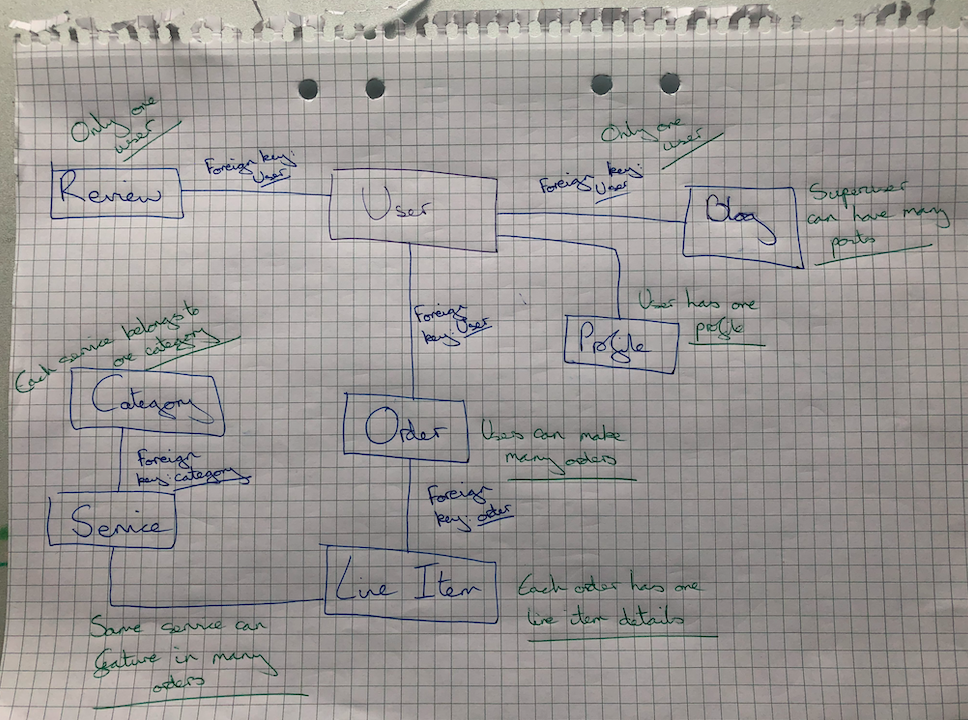 Only one
user
Foreign key:
User
Review
User
Only one
user
Foreign key:
User
Blog
Superuser
can have many
posts
Foreign
key: User
User has one
profile
Profile
Each service belongs to
one category
Category
Foreign
key: category
Service
Order
Users can make
many orders
Foreign
key: order
Line Item
Each order has one
line item details
Same service can
feature in many
orders